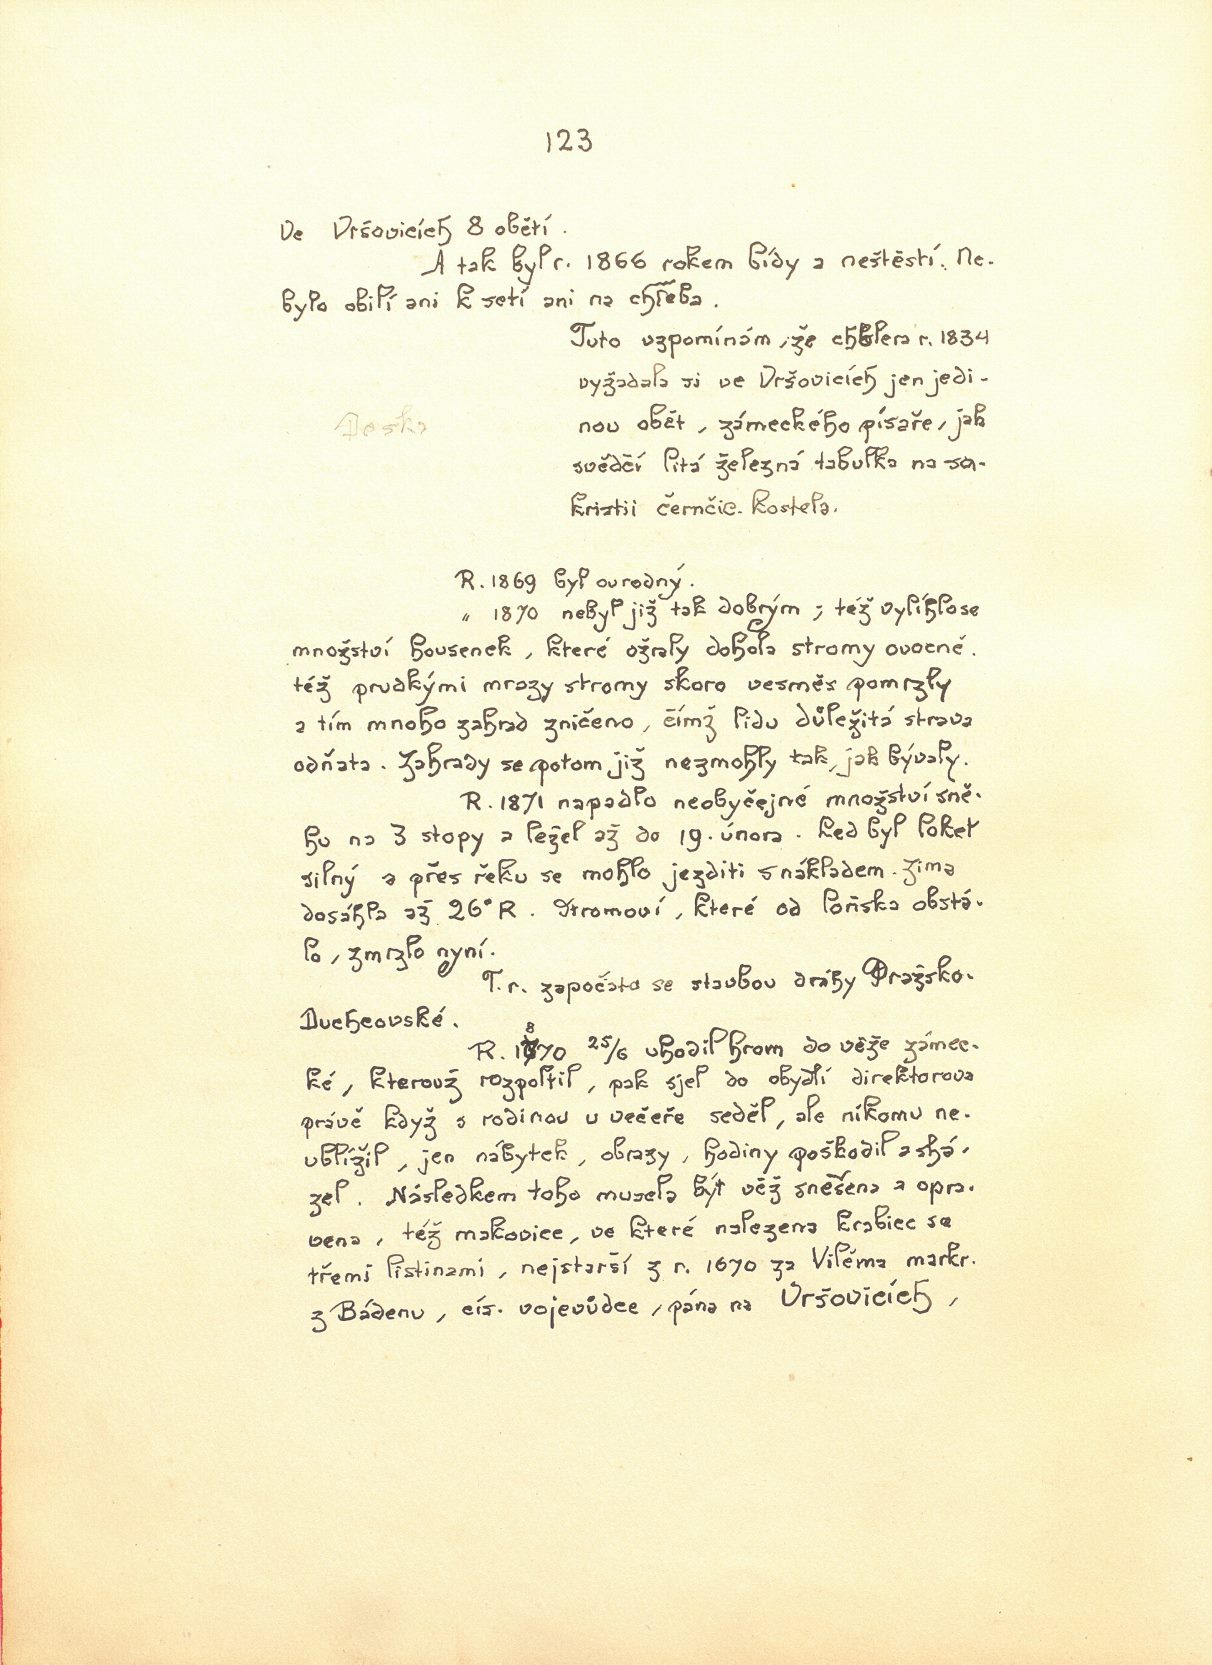 123
Ve Vršovicích 8 obětí.
A tak byl r. 1866 rokem bídy a neštěstí. Ne-
bylo obilí ani k setí ani na chleba.
Tuto vzpomínám, že cholera r. 1834
vyžadala si ve Vršovicích jen jedi-
nou obět, zámeckého písaře, jak
Deska
svědčí litá železná tabulka na sa-
kristii černčic. kostela.
R. 1869 byl ourodný.
" 1870 nebyl již tak dobrým; též vylíhlo se
množství housenek, které ožraly dohola stromy ovocné.
též prudkými mrazy stromy skoro vesměs pomrzly
a tím mnoho zahrad zničeno, čímž lidu důležitá strava
odňata. Zahrady se potom již nezmohly tak, jak bývaly.
R. 1871 napadlo neobyčejné množství sně-
hu na 3 stopy a ležel až do 19. února. Led byl loket
silný a přes řeku se mohlo jezditi s nákladem. Zima
dosáhla až 26° R. Stromoví, které od loňska obstá-
lo, zmrzlo nyní.
T. r. započato se stavbou dráhy Pražsko-
Duchcovské.
R. 1870 25/6 uhodil hrom do věže zámec-
ké, kterouž rozpoltil, pak sjel do obydlí direktorova
právě když s rodinou u večeře seděl, ale nikomu ne-
ublížil, jen nábytek, obrazy, hodiny poškodil a shá-
zel. Následkem toho musela být věž snešena a opra-
vena, též makovice, ve které nalezena krabiec se
třemi listinami, nejstarší z r. 1670 za Viléma markr.
z Bádenu, cís. vojevůdce, pána na Vršovicích,